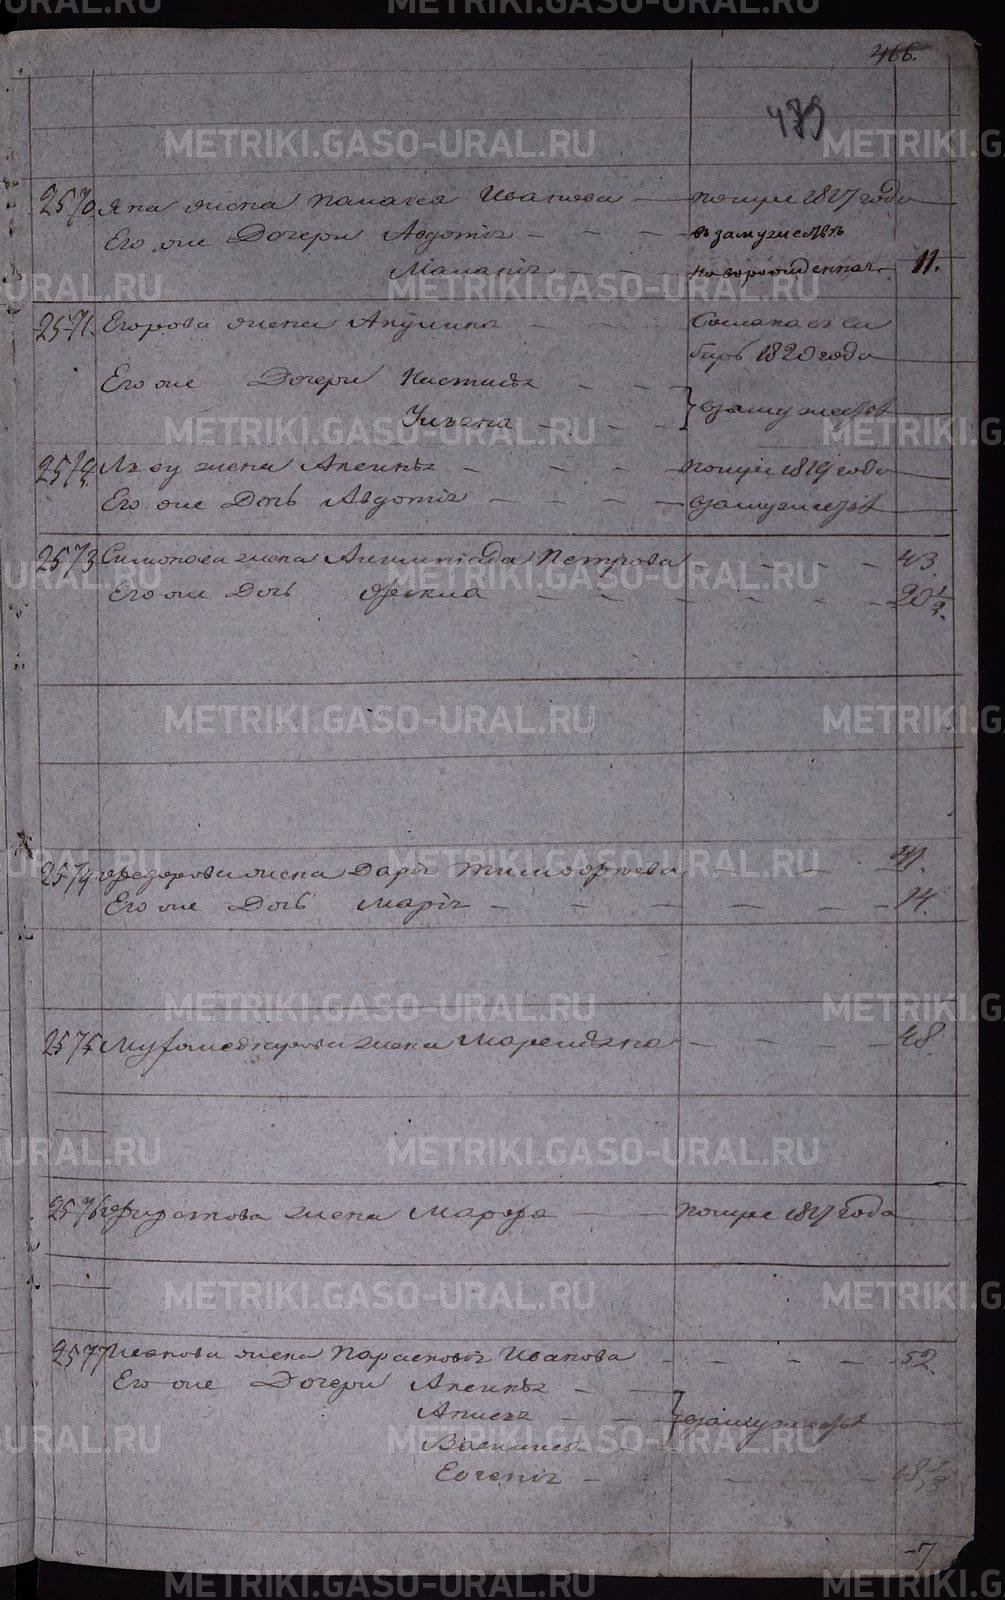 466.
479
2570 Яна жена Палагея Иванова — помре 1817 года
Его же Дочери Авдотья — в замужестве
Маланья — новорожденная 11.
2571 Егорова жена Акулина — Сослана в Си
бирь 1820 года
Его же Дочери Настасья
Ульяна — } в замужестве
2572 жена Аксинья — помре 1819 года
Его же Дочь Авдотья — в замужестве
2573 Симонова жена Петрова — 43.
Его же Дочь Фекла — 20
2574 Федорова жена Дарья Тимофеева — 41.
Его же Дочь Марья — 14.
2575 жена — 48
2576 жена Марфа — помре 1817 года
2577 Иванова жена Парасковья Иванова — 52
Его же Дочери Аксинья
Анисья — } в замужестве
Василиса
Евгенья — 18
7
METRIKI.GASO-URAL.RU